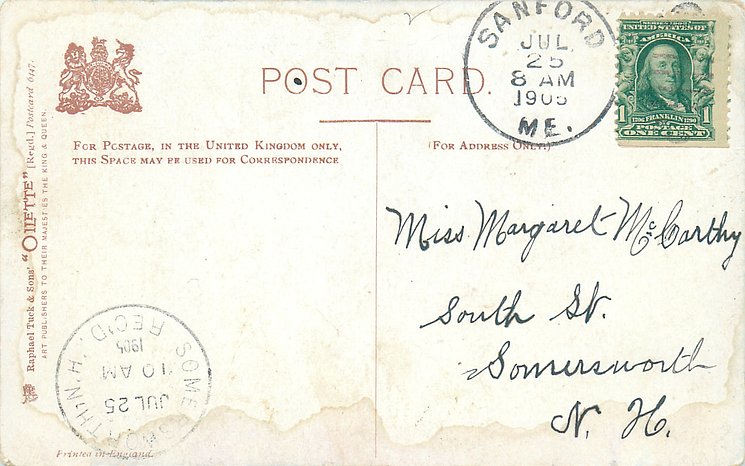 POST CARD.
FOR POSTAGE, IN THE UNITED KINGDOM ONLY,
THIS SPACE MAY BE USED FOR CORRESPONDENCE
(FOR ADDRESS ONLY.)
SANFORD
JUL
25
8 AM
1905
ME.
SERIES 1902
UNITED STATES OF
AMERICA
1 1
1706 FRANKLIN 1790
POSTAGE
ONE CENT
Miss Margaret McCarthy
South St.
Somersworth
N. H.
Raphael Tuck & Sons' "OILETTE" [Regd.] Postcard 6147.
ART PUBLISHERS TO THEIR MAJESTIES THE KING & QUEEN.
SOMERSWORTH, N.H.
JUL 25
10 AM
1905
REC'D.
Printed in England.